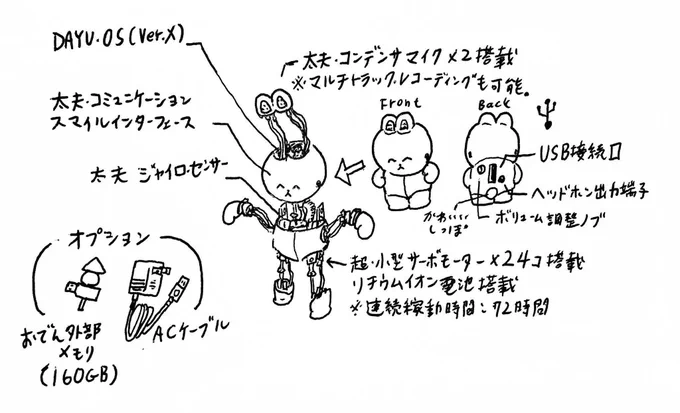 DAYU.OS (Ver.X)
太夫・コンデンサマイク×2搭載
※マルチトラック・レコーディングも可能。
太夫・コミュニケーション
スマイルインターフェース
太夫 ジャイロ・センサー
Front
Back
USB接続口
ヘッドホン出力端子
ボリューム調整ノブ
かわいい
しっぽ
オプション
おでん外部
メモリ
(160GB)
ACケーブル
超・小型サーボモーター×24コ搭載
リチウムイオン電池搭載
※連続稼動時間:72時間